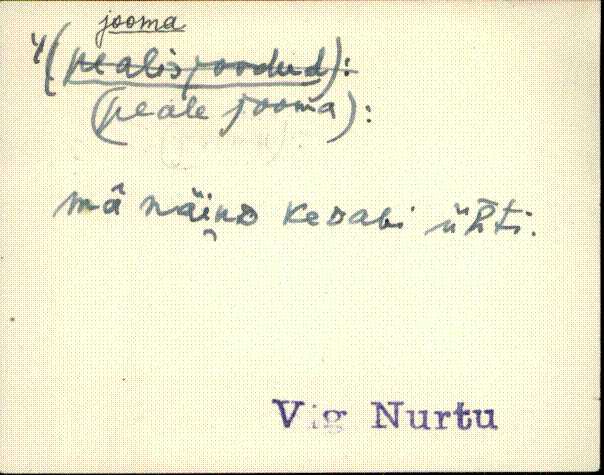 jooma
4 (pealisjoodud):
(peale jooma):
mâ näinD keDaBi üh̄ti.
Vig Nurtu